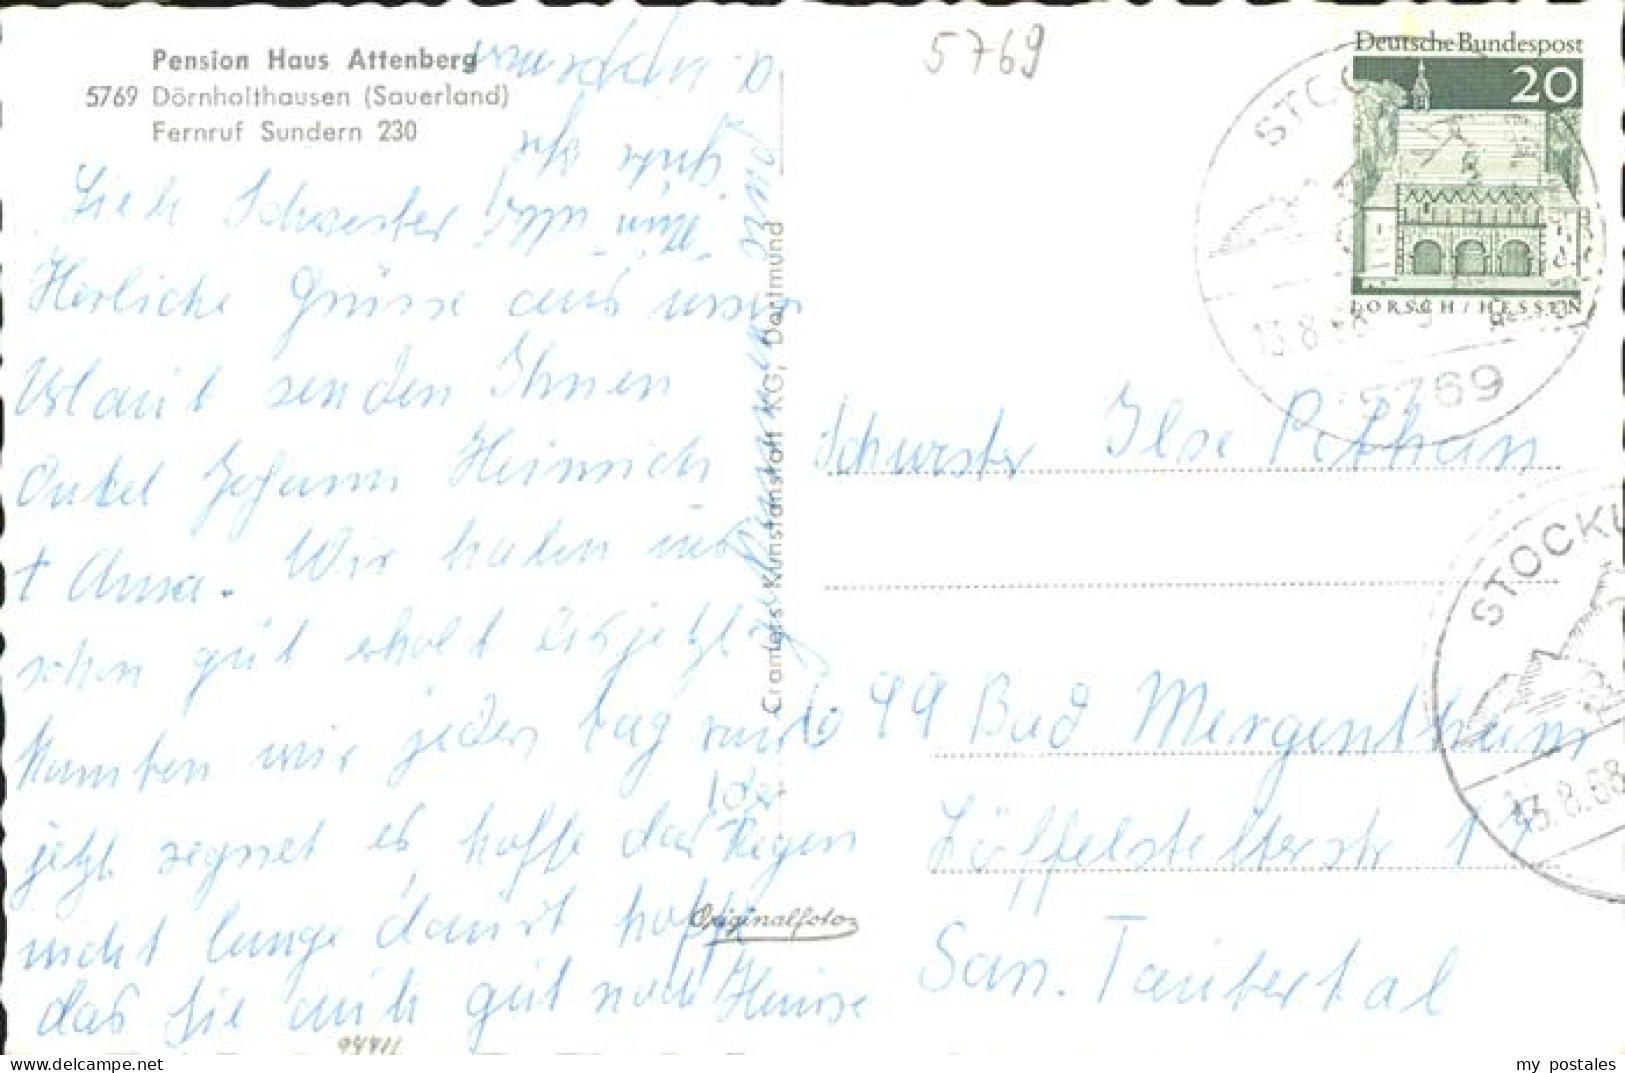 Pension Haus Attenberg
5769 Dörnholthausen (Sauerland)
Fernruf Sundern 230
Schwester
Herliche Grüsse aus unser
Urlaub senden Ihnen
Onkel Johann Heinrich
+ Anna. Wir haben uns
schon gut erholt bis jetzt
kamten wir jeden Tag
jetzt regnet es hoffe das der Regen
nicht lange dauert hoffe
das Sie auch gut nach Hause
Cramers Kunstanstalt KG, Dortmund
Originalfoto
94411
5769
Deutsche Bundespost
20
LORSCH / HESSEN
13.8.68
5769
Schwester Ilse Pithan
699 Bad Mergentheim
Löffelstelterstr 17
San. Taubertal
STOCKU
13.8.68
my postales